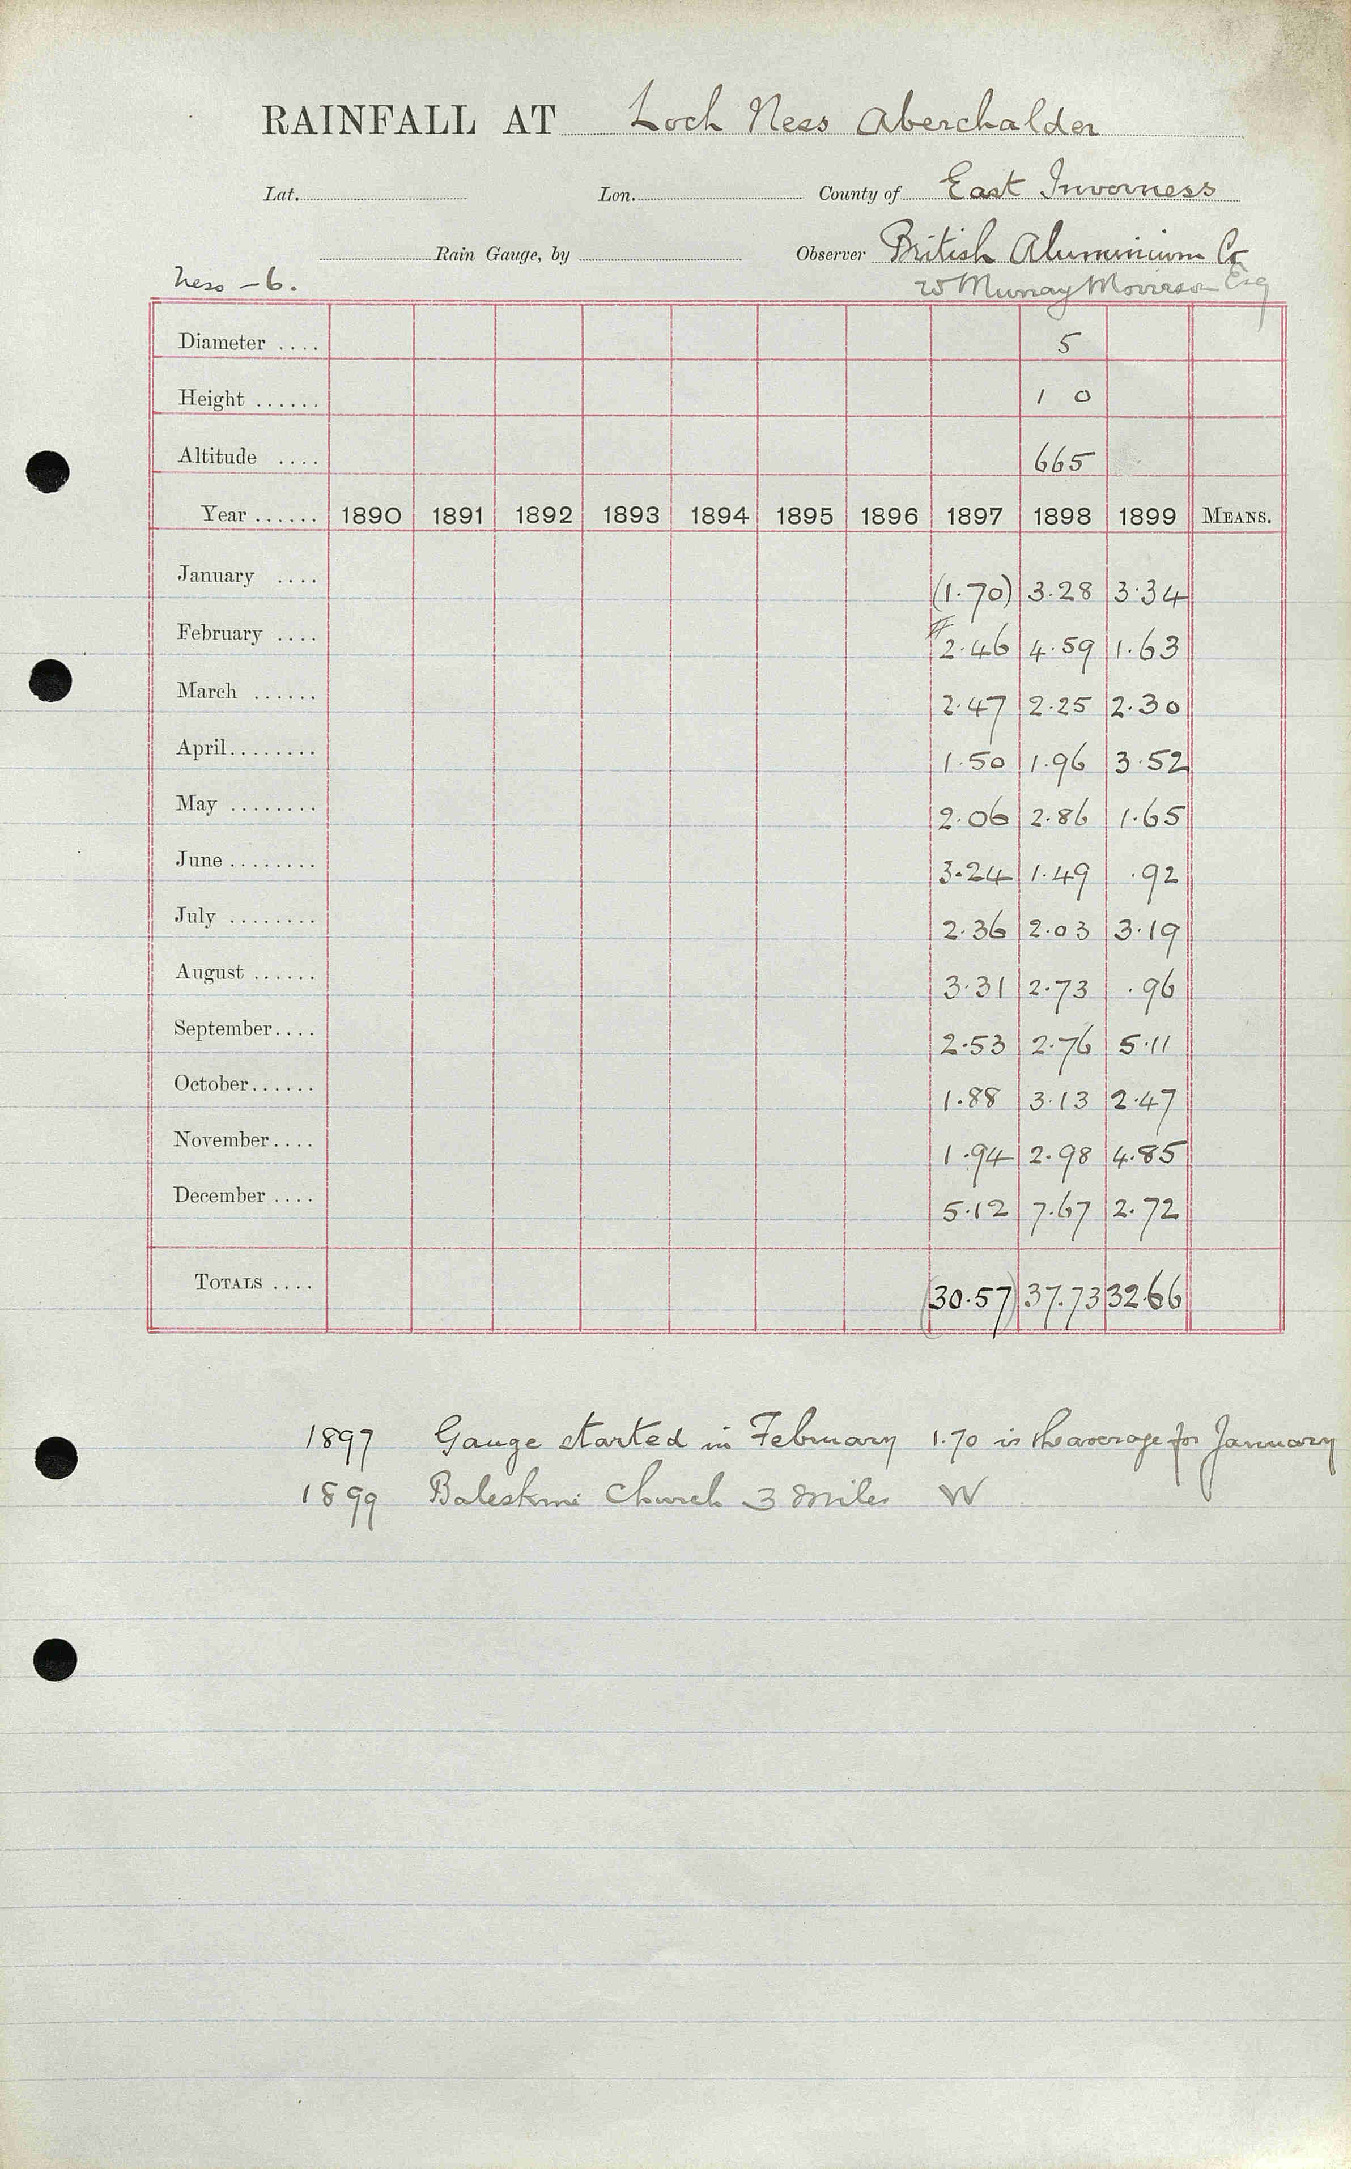 RAINFALL AT Loch Ness Aberchalder
Lat. Lon. County of East Inverness
Rain Gauge, by Observer British Aluminium Co
Ness - 6. W Murray Morrison Esq
Diameter .... 5
Height ...... 1 0
Altitude .... 665
Year ...... 1890 1891 1892 1893 1894 1895 1896 1897 1898 1899 MEANS.
January .... (1.70) 3.28 3.34
February .... 2.46 4.59 1.63
March ...... 2.47 2.25 2.30
April........ 1.50 1.96 3.52
May ........ 2.06 2.86 1.65
June ........ 3.24 1.49 .92
July ........ 2.36 2.03 3.19
August ...... 3.31 2.73 .96
September.... 2.53 2.76 5.11
October...... 1.88 3.13 2.47
November.... 1.94 2.98 4.85
December .... 5.12 7.67 2.72
TOTALS .... (30.57) 37.73 32.66
1897 Gauge started in February 1.70 is the average for January
1899 Church 3 miles W